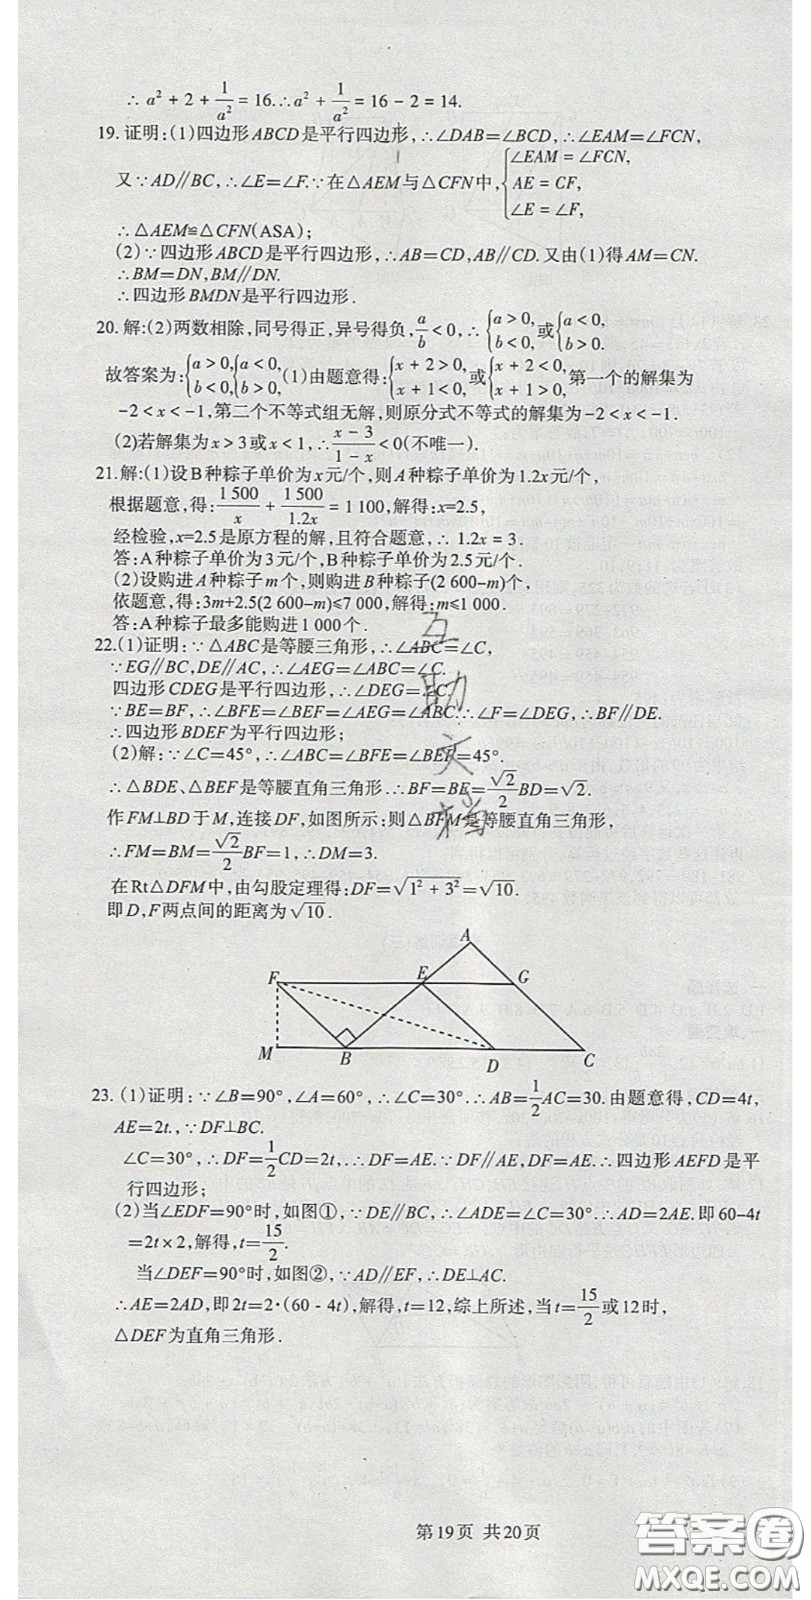 ∴ a² + 2 + 1/a² = 16.∴ a² + 1/a² = 16 − 2 = 14.
19.证明:(1)四边形ABCD是平行四边形,∴∠DAB=∠BCD,∴∠EAM=∠FCN,
又∵AD∥BC,∴∠E=∠F.∵在△AEM与△CFN中,{∠EAM = ∠FCN, AE = CF, ∠E = ∠F,
∴△AEM≌△CFN(ASA);
(2)∵四边形ABCD是平行四边形,∴AB=CD,AB∥CD.又由(1)得AM=CN.
∴BM=DN,BM∥DN.
∴四边形BMDN是平行四边形.
20.解:(2)两数相除,同号得正,异号得负,a/b<0,∴{a>0, b<0,或{a<0, b>0.
故答案为:{a>0, b<0,{a<0, b>0,(1)由题意得:{x+2>0, x+1<0,或{x+2<0, x+1>0,第一个的解集为
−2<x<−1,第二个不等式组无解,则原分式不等式的解集为−2<x<−1.
(2)若解集为x>3或x<1,∴(x−3)/(1−x)<0(不唯一).
21.解:(1)设B种粽子单价为x元/个,则A种粽子单价为1.2x元/个,
根据题意,得:1 500/x + 1 500/1.2x = 1 100,解得:x=2.5,
经检验,x=2.5是原方程的解,且符合题意,∴ 1.2x = 3.
答:A种粽子单价为3元/个,B种粽子单价为2.5元/个.
(2)设购进A种粽子m个,则购进B种粽子(2 600-m)个,
依题意,得:3m+2.5(2 600-m)≤7 000,解得:m≤1 000.
答:A种粽子最多能购进1 000个.
22.(1)证明:∵△ABC是等腰三角形,∴∠ABC=∠C,
∵EG∥BC,DE∥AC,∴∠AEG=∠ABC=∠C.
四边形CDEG是平行四边形,∴∠DEG=∠C.
∵BE=BF,∴∠BFE=∠BEF=∠AEG=∠ABC.∴∠F=∠DEG,∴BF∥DE.
∴四边形BDEF为平行四边形;
(2)解:∵∠C=45°,∴∠ABC=∠BFE=∠BEF=45°.
∴△BDE、△BEF是等腰直角三角形.∴BF=BE=√2/2BD=√2.
作FM⊥BD于M,连接DF,如图所示:则△BFM是等腰直角三角形,
∴FM=BM=√2/2BF=1,∴DM=3.
在Rt△DFM中,由勾股定理得:DF=√(1²+3²)=√10.
即D,F两点间的距离为√10.
A
F
E
G
M
B
D
C
23.(1)证明:∵∠B=90°,∠A=60°,∴∠C=30°.∴AB=1/2AC=30.由题意得,CD=4t,
AE=2t.,∵DF⊥BC.
∠C=30°,∴DF=1/2CD=2t,∴DF=AE.∵DF∥AE,DF=AE.∴四边形AEFD是平
行四边形;
(2)当∠EDF=90°时,如图①,∵DE∥BC,∴∠ADE=∠C=30°.∴AD=2AE.即60-4t
=2t×2,解得,t=15/2.
当∠DEF=90°时,如图②,∵AD∥EF,∴DE⊥AC.
∴AE=2AD,即2t=2·(60-4t),解得,t=12,综上所述,当t=15/2或12时,
△DEF为直角三角形.
第19页 共20页
互助文档
答案圈
MXQE.COM